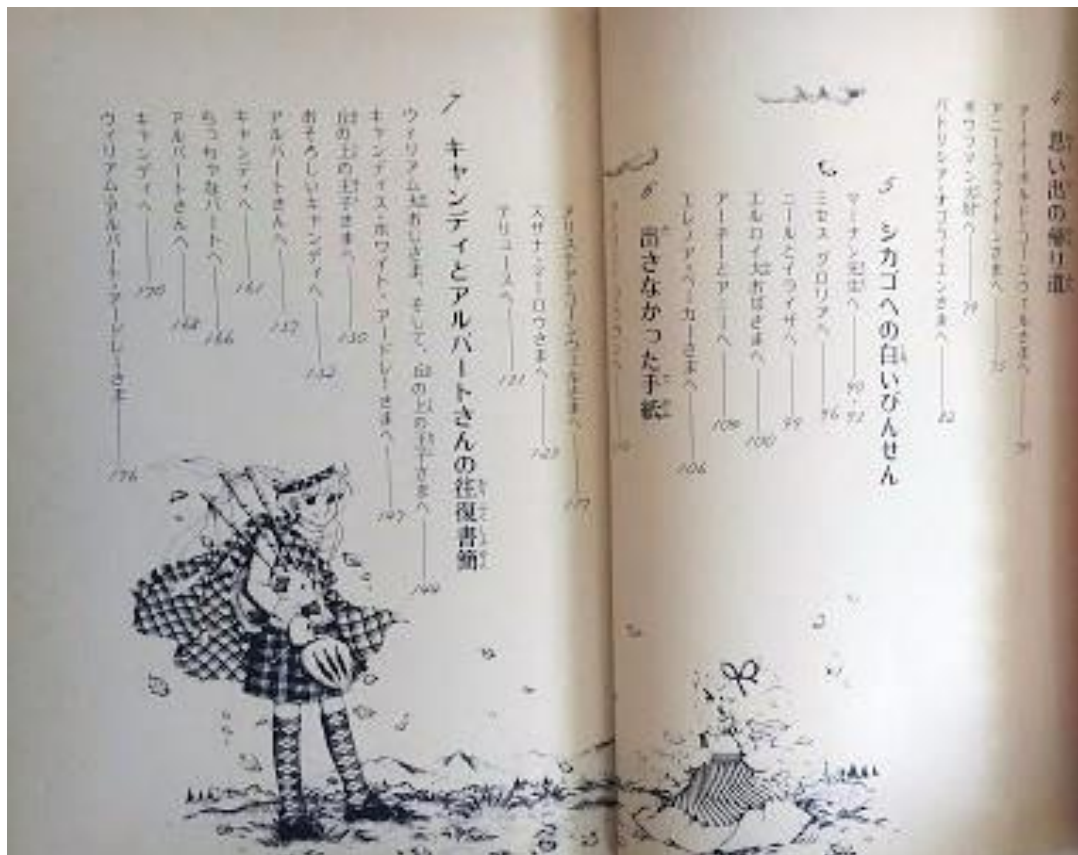 4 思い出の帰り道
アーチーボルト・コーンウェルさまへ
アニー・ブライトンさまへ 75
先生へ 79
パトリシア・オブライエンさまへ 82
5 シカゴへの白いびんせん
マーチン先生へ 90・93
ミセス グロリアへ 96
ニールとイライザへ 99
エルロイ大おばさまへ 100
アーチーとアニーへ 104
エレノア・ベーカーさまへ 106
6 出さなかった手紙
アリステア・コーンウェルさまへ 117
スザナ・マーロウさまへ 123
テリュースへ 131
7 キャンディとアルバートさんの往復書簡
ウィリアム大おじさま、そして、丘の上の王子さまへ 144
キャンディス・ホワイト・アードレーさまへ 147
丘の上の王子さまへ 150
おそろしいキャンディへ 152
アルバートさんへ 157
キャンディへ 161
ちっちゃなバートへ 166
アルバートさんへ 168
キャンディへ 170
ウィリアム・アルバート・アードレーさま 176